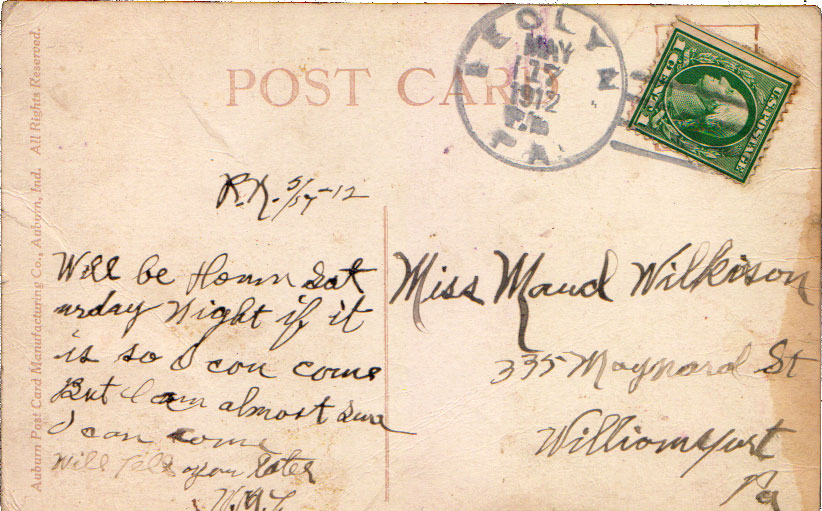 POST CARD
MAY
1912
PA.
1 CENT 1
U.S. POSTAGE
Auburn Post Card Manufacturing Co., Auburn, Ind. All Rights Reserved.
5/17-12
Will be Home Sat
urday Night if it
is so I can come
But I am almost sure
I can come
Will Tell you later
Miss Maud Wilkison
335 Maynard St
Williamsport
Pa